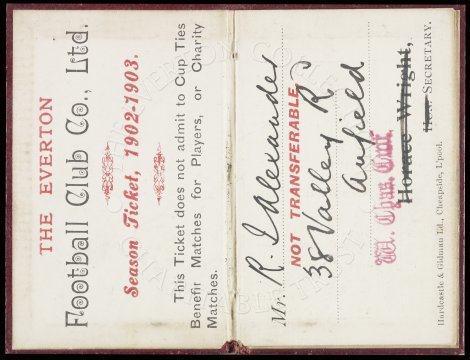 THE EVERTON
Football Club Co., Ltd.
Season Ticket, 1902-1903.
This Ticket does not admit to Cup Ties
Benefit Matches for Players, or Charity
Matches.
Mr. R. J Alexander
NOT TRANSFERABLE
38 Valley Rd
Anfield
Wm. Chas. Cuff.
Horace Wright,
Hon. SECRETARY.
Hardcastle & Gidman Ltd., Cheapside, L'pool.
THE EVERTON COLLECTION
CHARITABLE TRUST